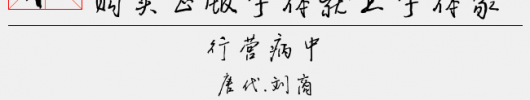 购买正版字体就上字体家
行营病中
唐代.刘商